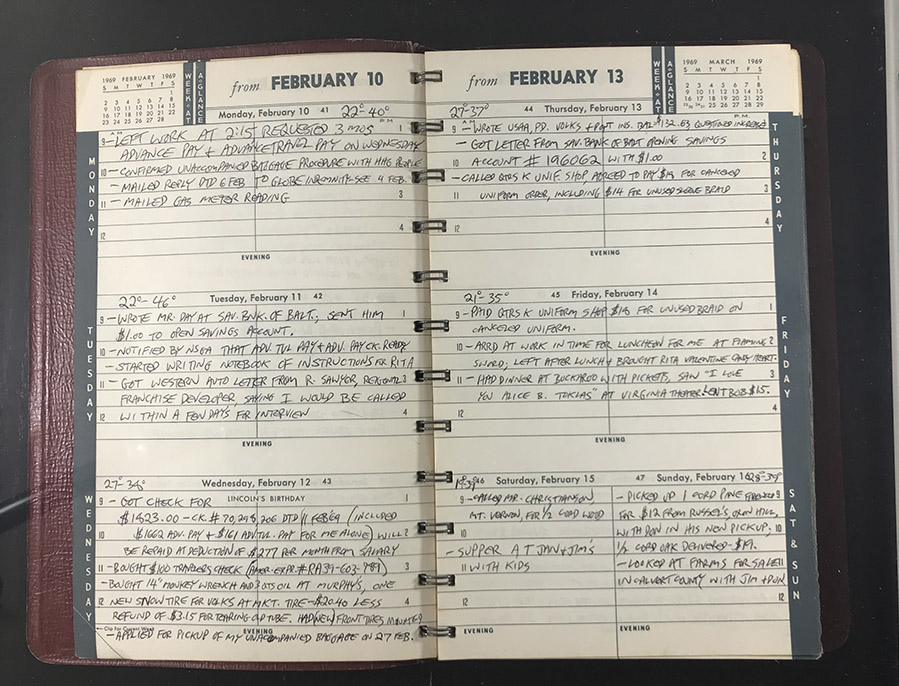 1969 FEBRUARY 1969
S M T W T F S
1
2 3 4 5 6 7 8
9 10 11 12 13 14 15
16 17 18 19 20 21 22
23 24 25 26 27 28
WEEK AT
A GLANCE
from FEBRUARY 10
Monday, February 10 41 22°-40°
A.M. P.M.
9 - LEFT WORK AT 2:15 REQUESTED 3 MOS 1
ADVANCE PAY + ADVANCE TRAVEL PAY ON WEDNESDAY
10 - CONFIRMED UNACCOMPANIED BAGGAGE PROCEDURE WITH HHG PEOPLE
- MAILED REPLY DTD 6 FEB TO GLOBE INDEMNITY-SEE 4 FEB.
11 - MAILED GAS METER READING 3
12 4
EVENING
MONDAY
22°-46° Tuesday, February 11 42
9 - WROTE MR. DAY AT SAV. BNK. OF BALT., SENT HIM 1
$1.00 TO OPEN SAVINGS ACCOUNT.
10 - NOTIFIED BY NSGA THAT ADV. TVL PAY + ADV. PAY CK. READY
- STARTED WRITING NOTEBOOK OF INSTRUCTIONS FOR RITA
11 - GOT WESTERN AUTO LETTER FROM R. SAWYOR, REGIONAL 3
FRANCHISE DEVELOPER SAYING I WOULD BE CALLED
12 WITHIN A FEW DAYS FOR INTERVIEW 4
EVENING
TUESDAY
27°-34° Wednesday, February 12 43
9 - GOT CHECK FOR LINCOLN'S BIRTHDAY 1
$1823.00 - CK. # 70,298,206 DTD 11 FEB 69 (INCLUDED
10 $1662 ADV. PAY + $161 ADV. TVL. PAY FOR ME ALONE) WILL 2
BE REPAID AT DEDUCTION OF $277 PER MONTH FROM SALARY
11 - BOUGHT $100 TRAVELERS CHECK (AMER. EXPR. # RA39-603-989) 3
- BOUGHT 14" MONKEY WRENCH AND 3 QTS OIL AT MURPHY'S, ONE
12 NEW SNOW TIRE FOR VOLKS AT MKT. TIRE - $20.40 LESS 4
REFUND OF $3.15 FOR TEARING OLD TUBE. HAD (NEW) FRONT TIRES MOUNTED
Clip For Current Week EVENING
- APPLIED FOR PICKUP OF MY UNACCOMPANIED BAGGAGE ON 27 FEB.
WEDNESDAY
from FEBRUARY 13
WEEK AT
A GLANCE
1969 MARCH 1969
S M T W T F S
1
2 3 4 5 6 7 8
9 10 11 12 13 14 15
16 17 18 19 20 21 22
23/30 24/31 25 26 27 28 29
27°-37° 44 Thursday, February 13
A.M. P.M.
9 - WROTE USAA, PD. VOLKS + PPT INS. BAL $132.63 QUESTIONED INCREASE
- GOT LETTER FROM SAV. BANK OF BALT OPENING SAVINGS
10 ACCOUNT # 196062 WITH $1.00 2
- CALLED QTRS K UNIF SHOP AGREED TO PAY $14 FOR CANCELED
11 UNIFORM ORDER, INCLUDING $14 FOR UNUSED SLEEVE BRAID 3
12 4
EVENING
THURSDAY
21°-35° 45 Friday, February 14
9 - PAID QTRS K UNIFORM SHOP FOR UNUSED BRAID ON 1
CANCELED UNIFORM.
10 - ARRD AT WORK IN TIME FOR LUNCHEON FOR ME AT FLAMING 2
SWORD, LEFT AFTER LUNCH + BROUGHT RITA VALENTINE CANDY HEART.
11 - HAD DINNER AT BUCKAROO WITH PICKETTS, SAW "I LOVE 3
YOU ALICE B. TOKLAS" AT VIRGINIA THEATER. LENT BOB $15.
12 4
EVENING
FRIDAY
46 Saturday, February 15
9 - CALLED MR. CHRISTIANSON
MT. VERNON, FOR 1/2 CORD WOOD
10
- SUPPER AT JAN + JIM'S
11 WITH KIDS
12
EVENING
47 Sunday, February 16 28°-39°
- PICKED UP 1 CORD PINE FIREWOOD 9
FOR $12 FROM RUSSEL'S, OXON HILL,
WITH DON IN HIS NEW PICKUP, 10
1/2 CORD OAK DELIVERED - $19.
- LOOKED AT FARMS FOR SALE 11
IN CALVERT COUNTY WITH JIM + DON
12
EVENING
SAT & SUN